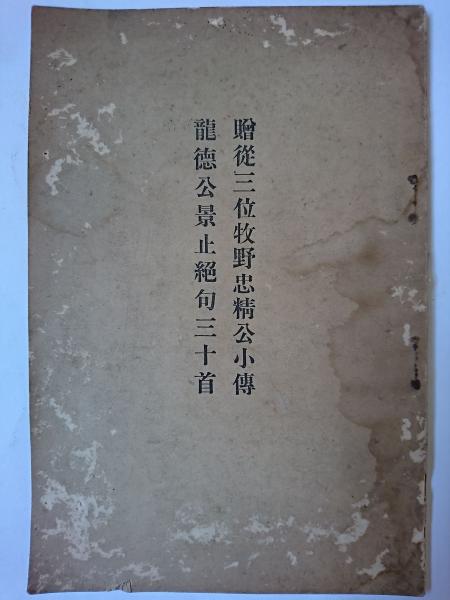 贈從三位牧野忠精公小傳
龍德公景止絕句三十首